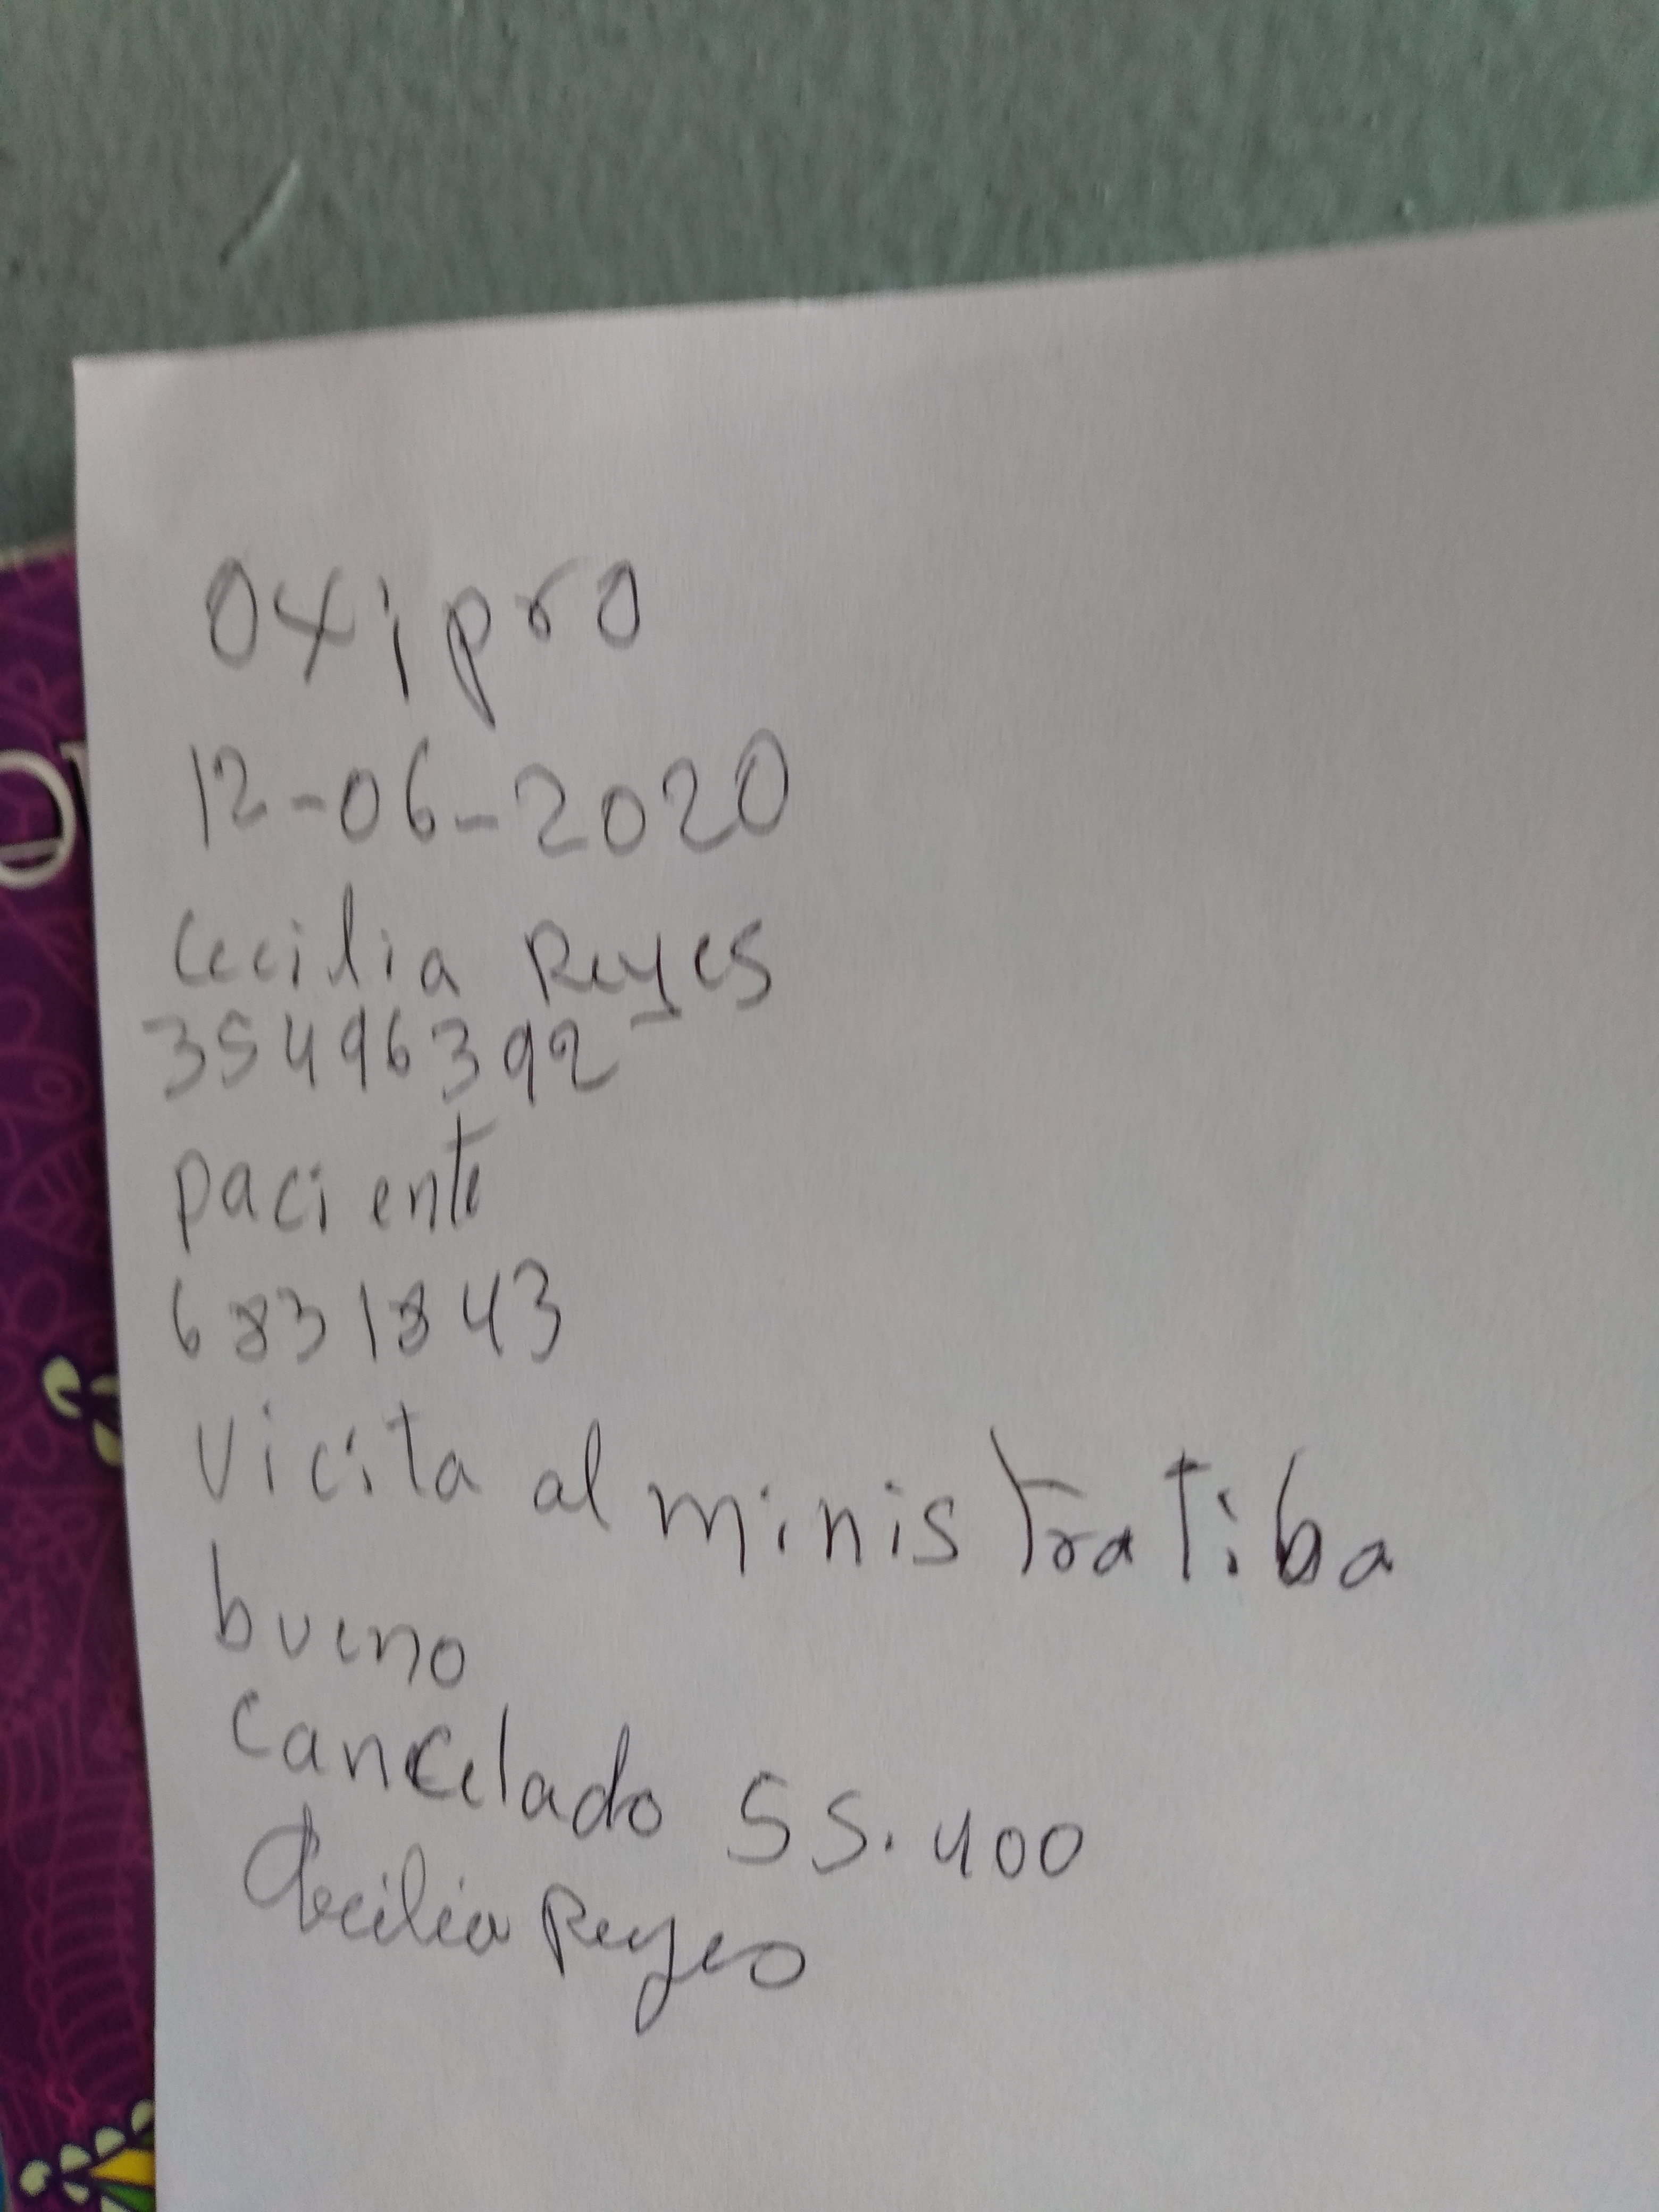 Oxipro
12-06-2020
Cecilia Reyes
35496392
paciente
6831843
vicita alministratiba
bueno
cancelado 55.400
Cecilia Reyes